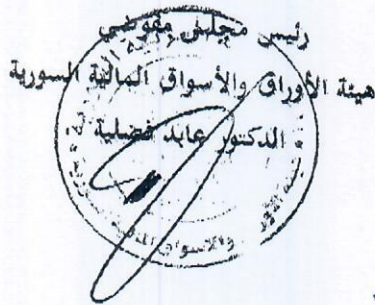 رئيس مجلس مفوضي
هيئة الأوراق والأسواق المالية السورية
الدكتور عابد فضلية
والأسواق المالية